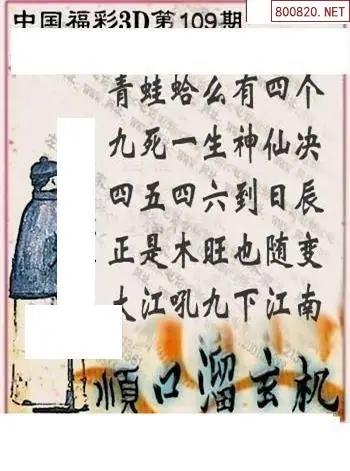 中国福彩3D第109期
800820.NET
青蛙蛤么有四个
九死一生神仙决
四五四六到日辰
正是木旺也随变
大江吼九下江南
顺口溜玄机